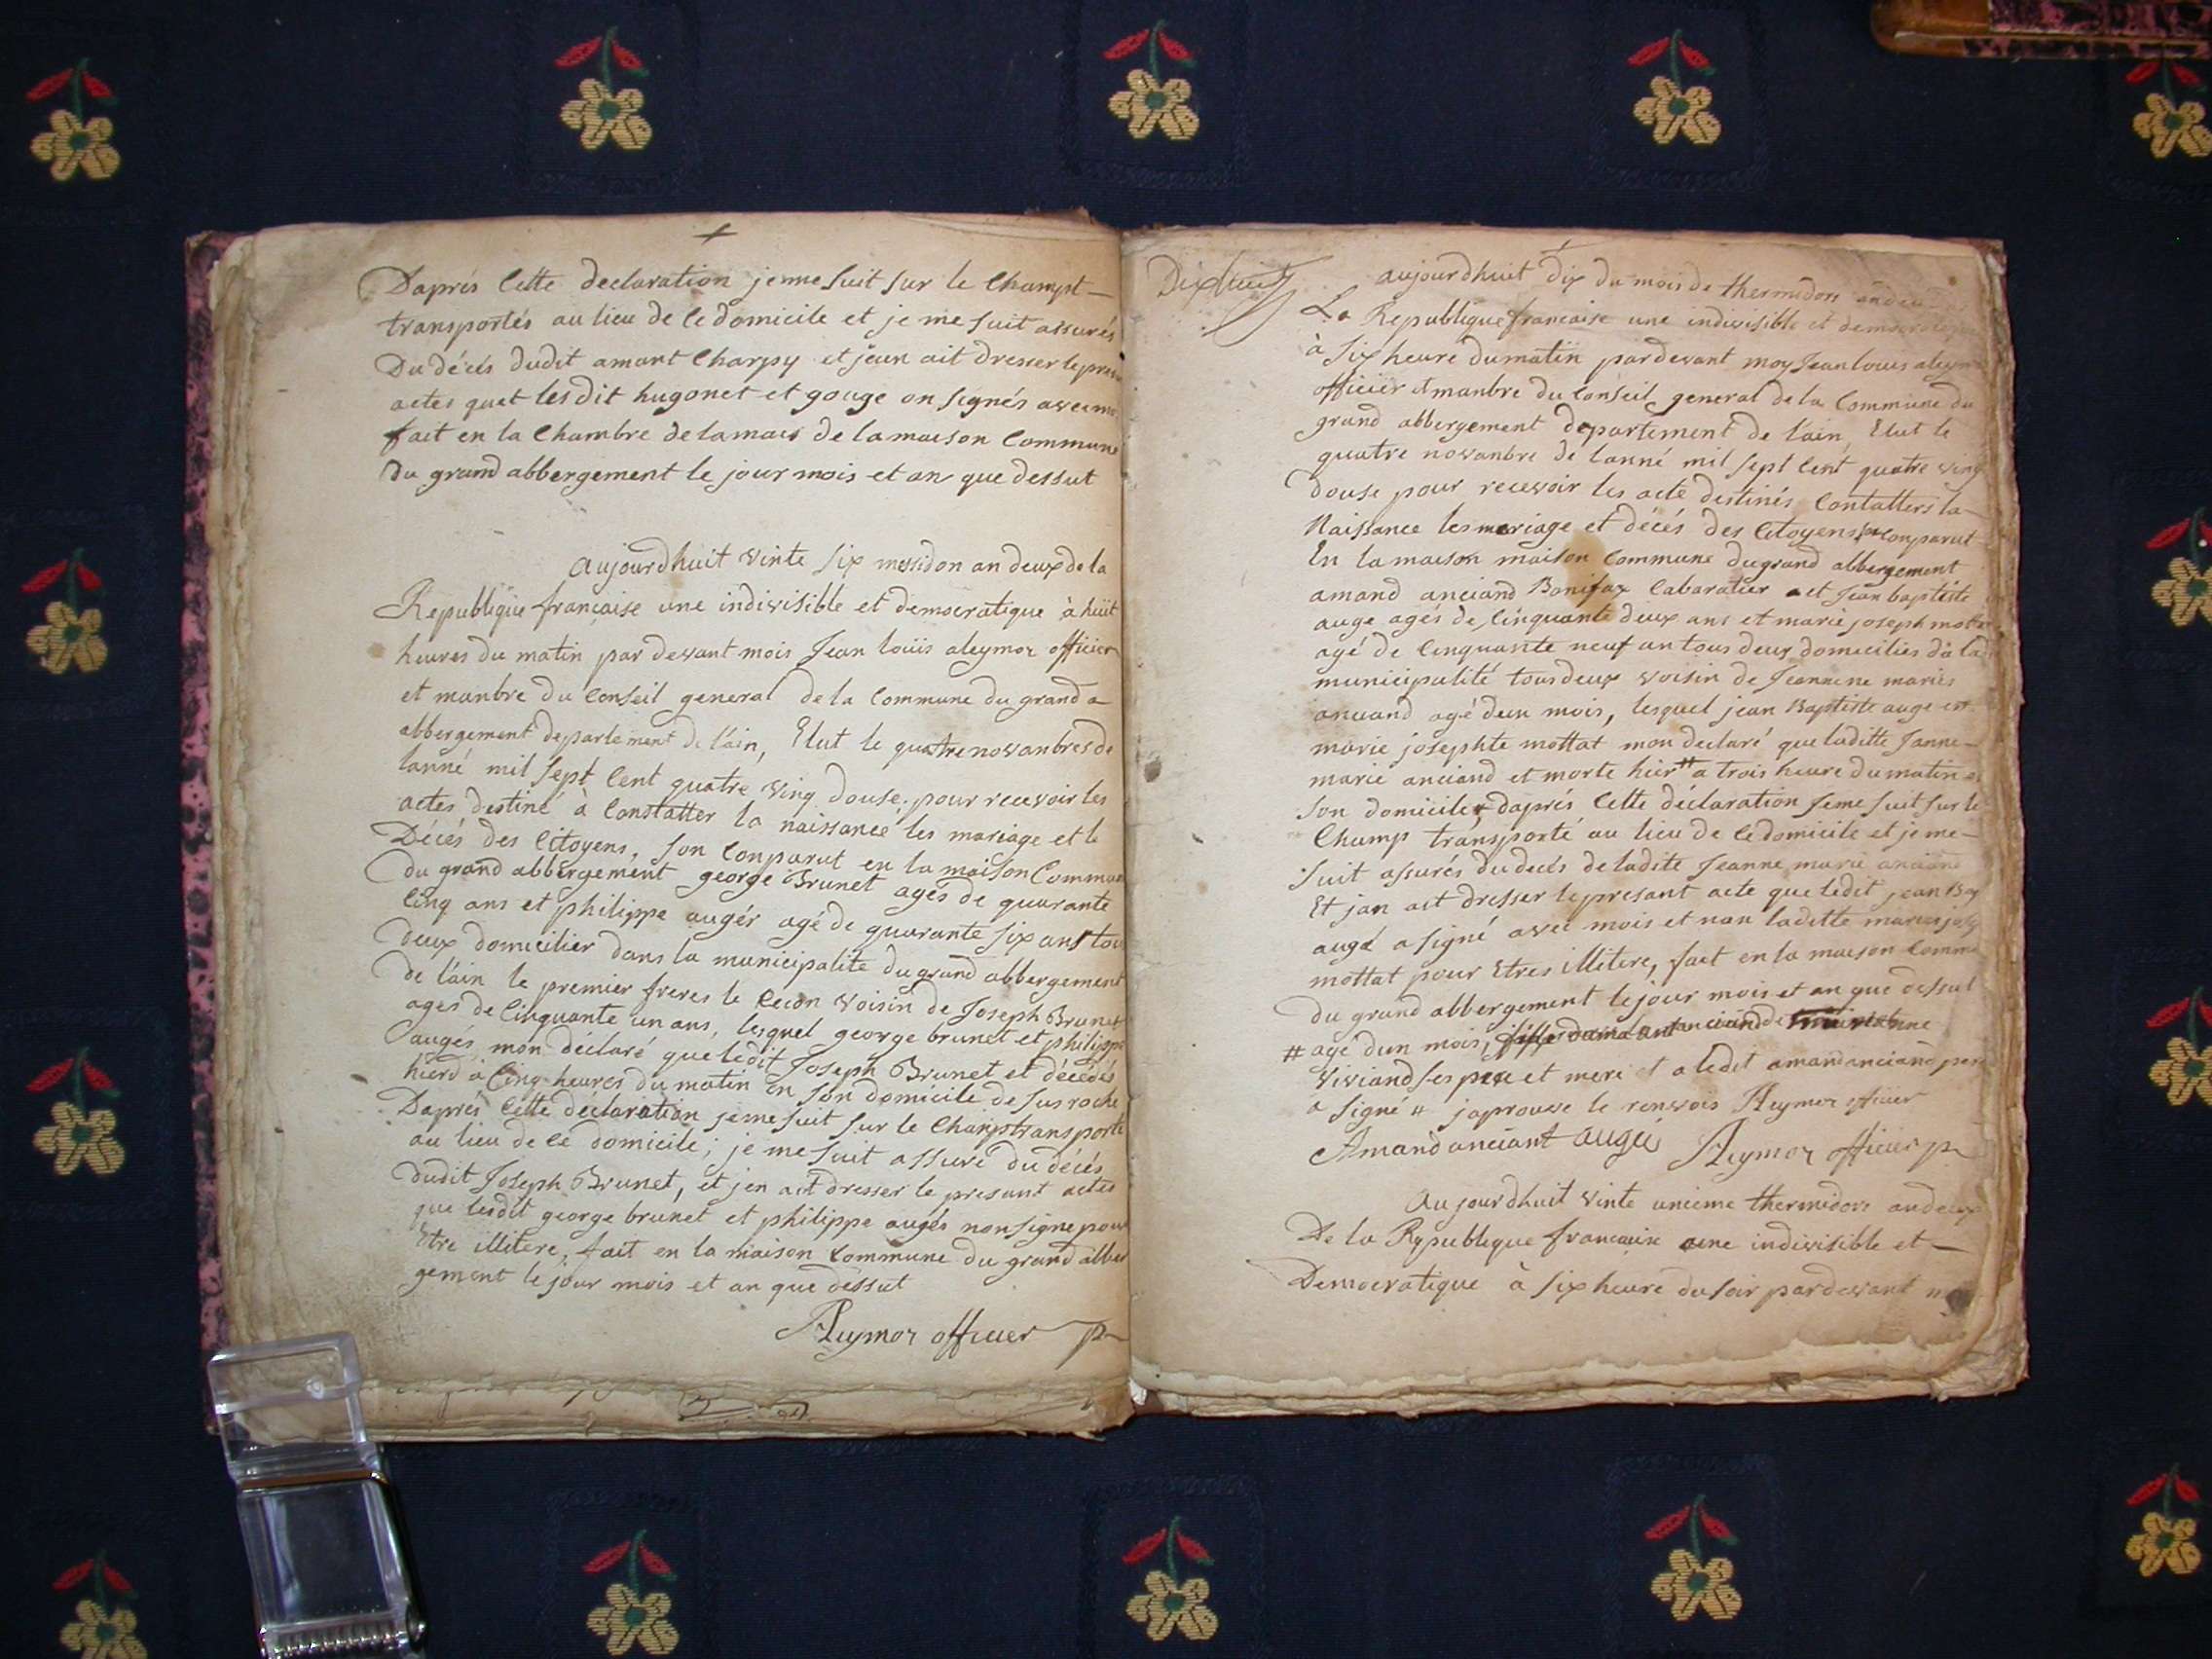 Daprés Cette declaration jemme suit sur le Champt
transportés au lieu de Ce domicile et je me suit assurés
Du décés dudit amant Charpy et jeun ait dresser le
actes quet les dit hugonet et gouge on signés avec
fait en la Chambre de la mais de la maison Commune
Du grand abbergement le jour mois et an que dessut
aujourdhuit vinte six messidon an deux de la
Republique française une indivisible et democratique à huit
heures du matin par devant mois Jean loüis aleymor officier
et manbre du Conseil general de la Commune du grand a
abbergement departement de lain, Elut le quatre novanbres de
lanné mil sept Cent quatre ving douse, pour recevoir les
actes destiné à Constatter la naissance les mariage et le
Décés des Citoyens, son Conparut en la maison Commune
du grand abbergement george Brunet agés de quarante
Cinq ans et philippe augér agé de quarante six ans tou
deux domicilier dans la municipalité du grand abbergement
de lain le premier freres le Secon voisin de Joseph Brunet
ages de Cinquante un ans, lesquel george brunet et philippe
augés mon déclaré que ledit Joseph Brunet et décédés
hierd à Cinq heures du matin en son domicile de sus roche
Daprés Cette déclaration jeme suit sur le Champ transporté
au lieu de Ce domicile, je me suit assuré du décés
dudit Joseph Brunet, et jen ait dresser le presant actes
que lesdit george brunet et philippe augés non signe pour
Etre illitere, fait en la maison Commune du grand abber
gement le jour mois et an que dessut
Aleymor officier p
Dixhuit
aujourdhuit dix du mois de thermidors an
La Republique francaise une indivisible et
à six heure du matin par devant moy Jean louis
officier et manbre du Conseil general de la Commune du
grand abbergement departement de lain, Elut le
quatre novanbre de lanné mil sept Cent quatre ving
douse pour recevoir les acte destinés Contatters la
Naissance les mariage et décés des Citoyens, son Conparut
En la maison maison Commune du grand abbergement
amand anciand Bonifax Cabaratier et Jean baptiste
auge agés de Cinquante deux ans et marie joseph
agé de Cinquante neuf an tous deux domicilies dà la
municipalité tous deux voisin de Jeannene maries
anciand agé dun mois, lesquel jean Baptiste auge et
marie josephte mottat mon declaré que laditte Janne
marie anciand et morte hier # a trois heure du matin
son domicile, daprés Cette déclaration jeme suit sur le
Champ transporté au lieu de Ce domicile et je me
suit assurés du decés de ladite Jeanne marie
Et jan ait dresser le presant acte que ledit jean
augé a signé avec mois et non laditte marie
mottat pour Etres illitere, fait en la maison
du grand abbergement le jour mois et an que dessut
# agé dun mois,
viviand ses pere et mere et a ledit amand anciand
a signé # japrouve le renvois Aleymor officier
Amand anciant augé Aleymor officier p
Aujourdhuit vinte unieme thermidore an deux
De la Rypublique francaise une indivisible et
Democratique à six heure du soir par devant